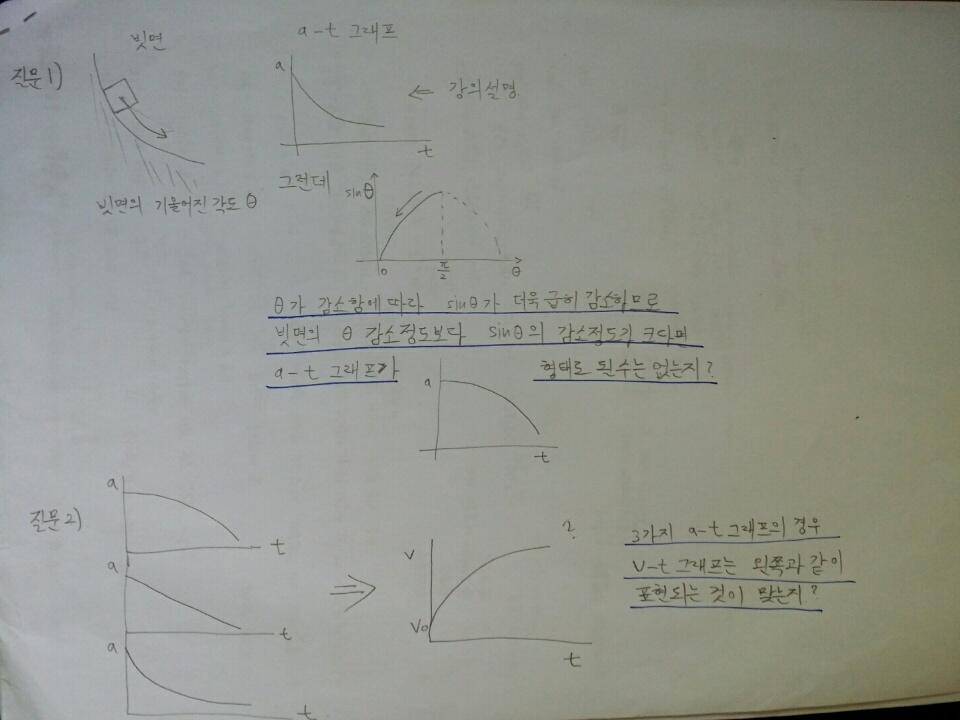 빗면
a-t 그래프
질문 1)
a
⇐ 강의설명.
t
그런데
sinθ
빗면의 기울어진 각도 θ
0
π/2
θ
θ가 감소함에 따라 sinθ가 더욱 급히 감소하므로
빗면의 θ 감소정도보다 sinθ의 감소정도가 크다면
a-t 그래프가 형태로 될수는 없는지?
a
t
질문 2)
a
t
a
t
a
t
⇒
v
v₀
t
?
3가지 a-t 그래프의 경우
v-t 그래프는 왼쪽과 같이
표현되는 것이 맞는지?